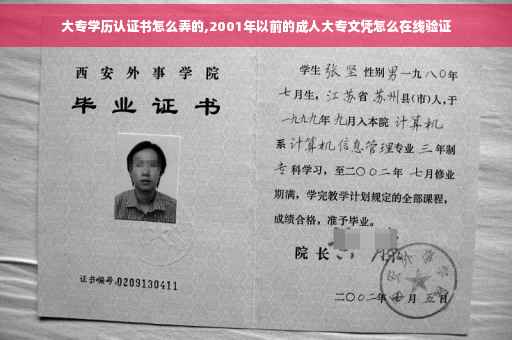 大专学历认证书怎么弄的,2001年以前的成人大专文凭怎么在线验证
西安外事学院
毕业证书
证书编号:0209130411
学生 张坚 性别男一九八〇年
七月生,江苏省苏州县(市)人,于
一九九九年 九月入本院 计算机
系 计算机信息管理专业 三 年制
专科学习,至二〇〇二年 七月修业
期满,学完教学计划规定的全部课程,
成绩合格,准予毕业。
院长
二〇〇二年 七 月 五 日